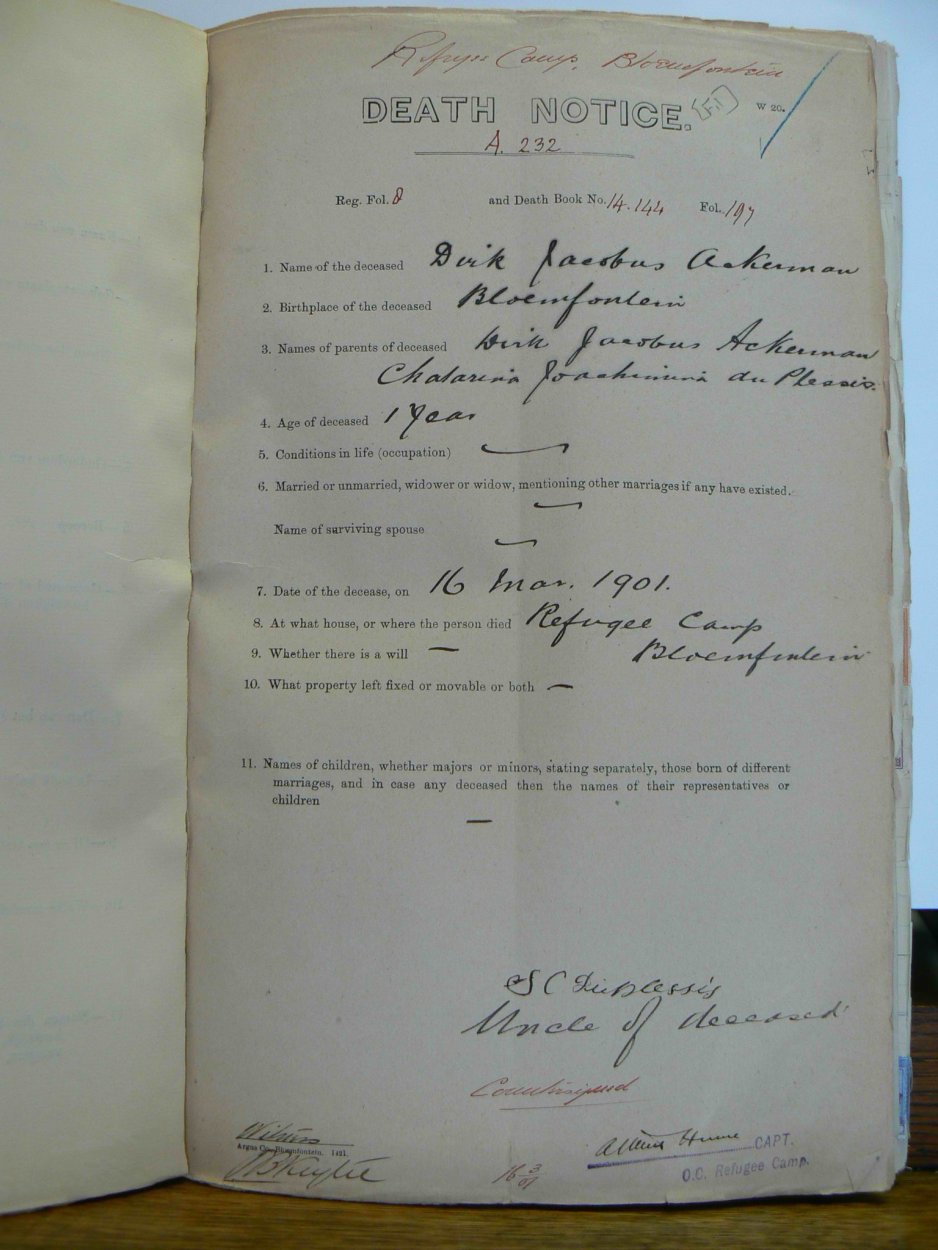 Refugee Camp, Bloemfontein
DEATH NOTICE.
W 20.
A. 232
Reg. Fol. 8 and Death Book No. 14.144 Fol. 197
1. Name of the deceased Dirk Jacobus Ackerman
2. Birthplace of the deceased Bloemfontein
3. Names of parents of deceased Dirk Jacobus Ackerman
Chatarina Joachimina du Plessis.
4. Age of deceased 1 Year
5. Conditions in life (occupation)
6. Married or unmarried, widower or widow, mentioning other marriages if any have existed.
Name of surviving spouse
7. Date of the decease, on 16 Mar. 1901.
8. At what house, or where the person died Refugee Camp
9. Whether there is a will — Bloemfontein
10. What property left fixed or movable or both —
11. Names of children, whether majors or minors, stating separately, those born of different
marriages, and in case any deceased then the names of their representatives or
children
—
S C Duplessis
Uncle of deceased
Countersigned
Witness
Argus Co., Bloemfontein. 1421.
CAPT.
O.C. Refugee Camp.
16 3/01